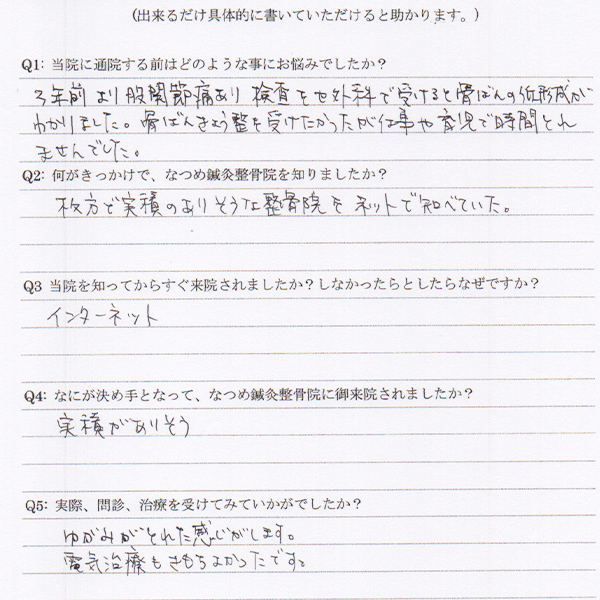 (出来るだけ具体的に書いていただけると助かります。)
Q1: 当院に通院する前はどのような事にお悩みでしたか?
3年前より股関節痛あり 検査をせ外科で受けると骨ばんの低形成が
わかりました。骨ばんきょう整を受けたかったが仕事や育児で時間とれ
ませんでした。
Q2: 何がきっかけで、なつめ鍼灸整骨院を知りましたか?
枚方で実積のありそうな整骨院をネットで知べていた。
Q3 当院を知ってからすぐ来院されましたか?しなかったらとしたらなぜですか?
インターネット
Q4: なにが決め手となって、なつめ鍼灸整骨院に御来院されましたか?
実積がありそう
Q5: 実際、問診、治療を受けてみていかがでしたか?
ゆがみがとれた感じがします。
電気治療もきもちよかったです。